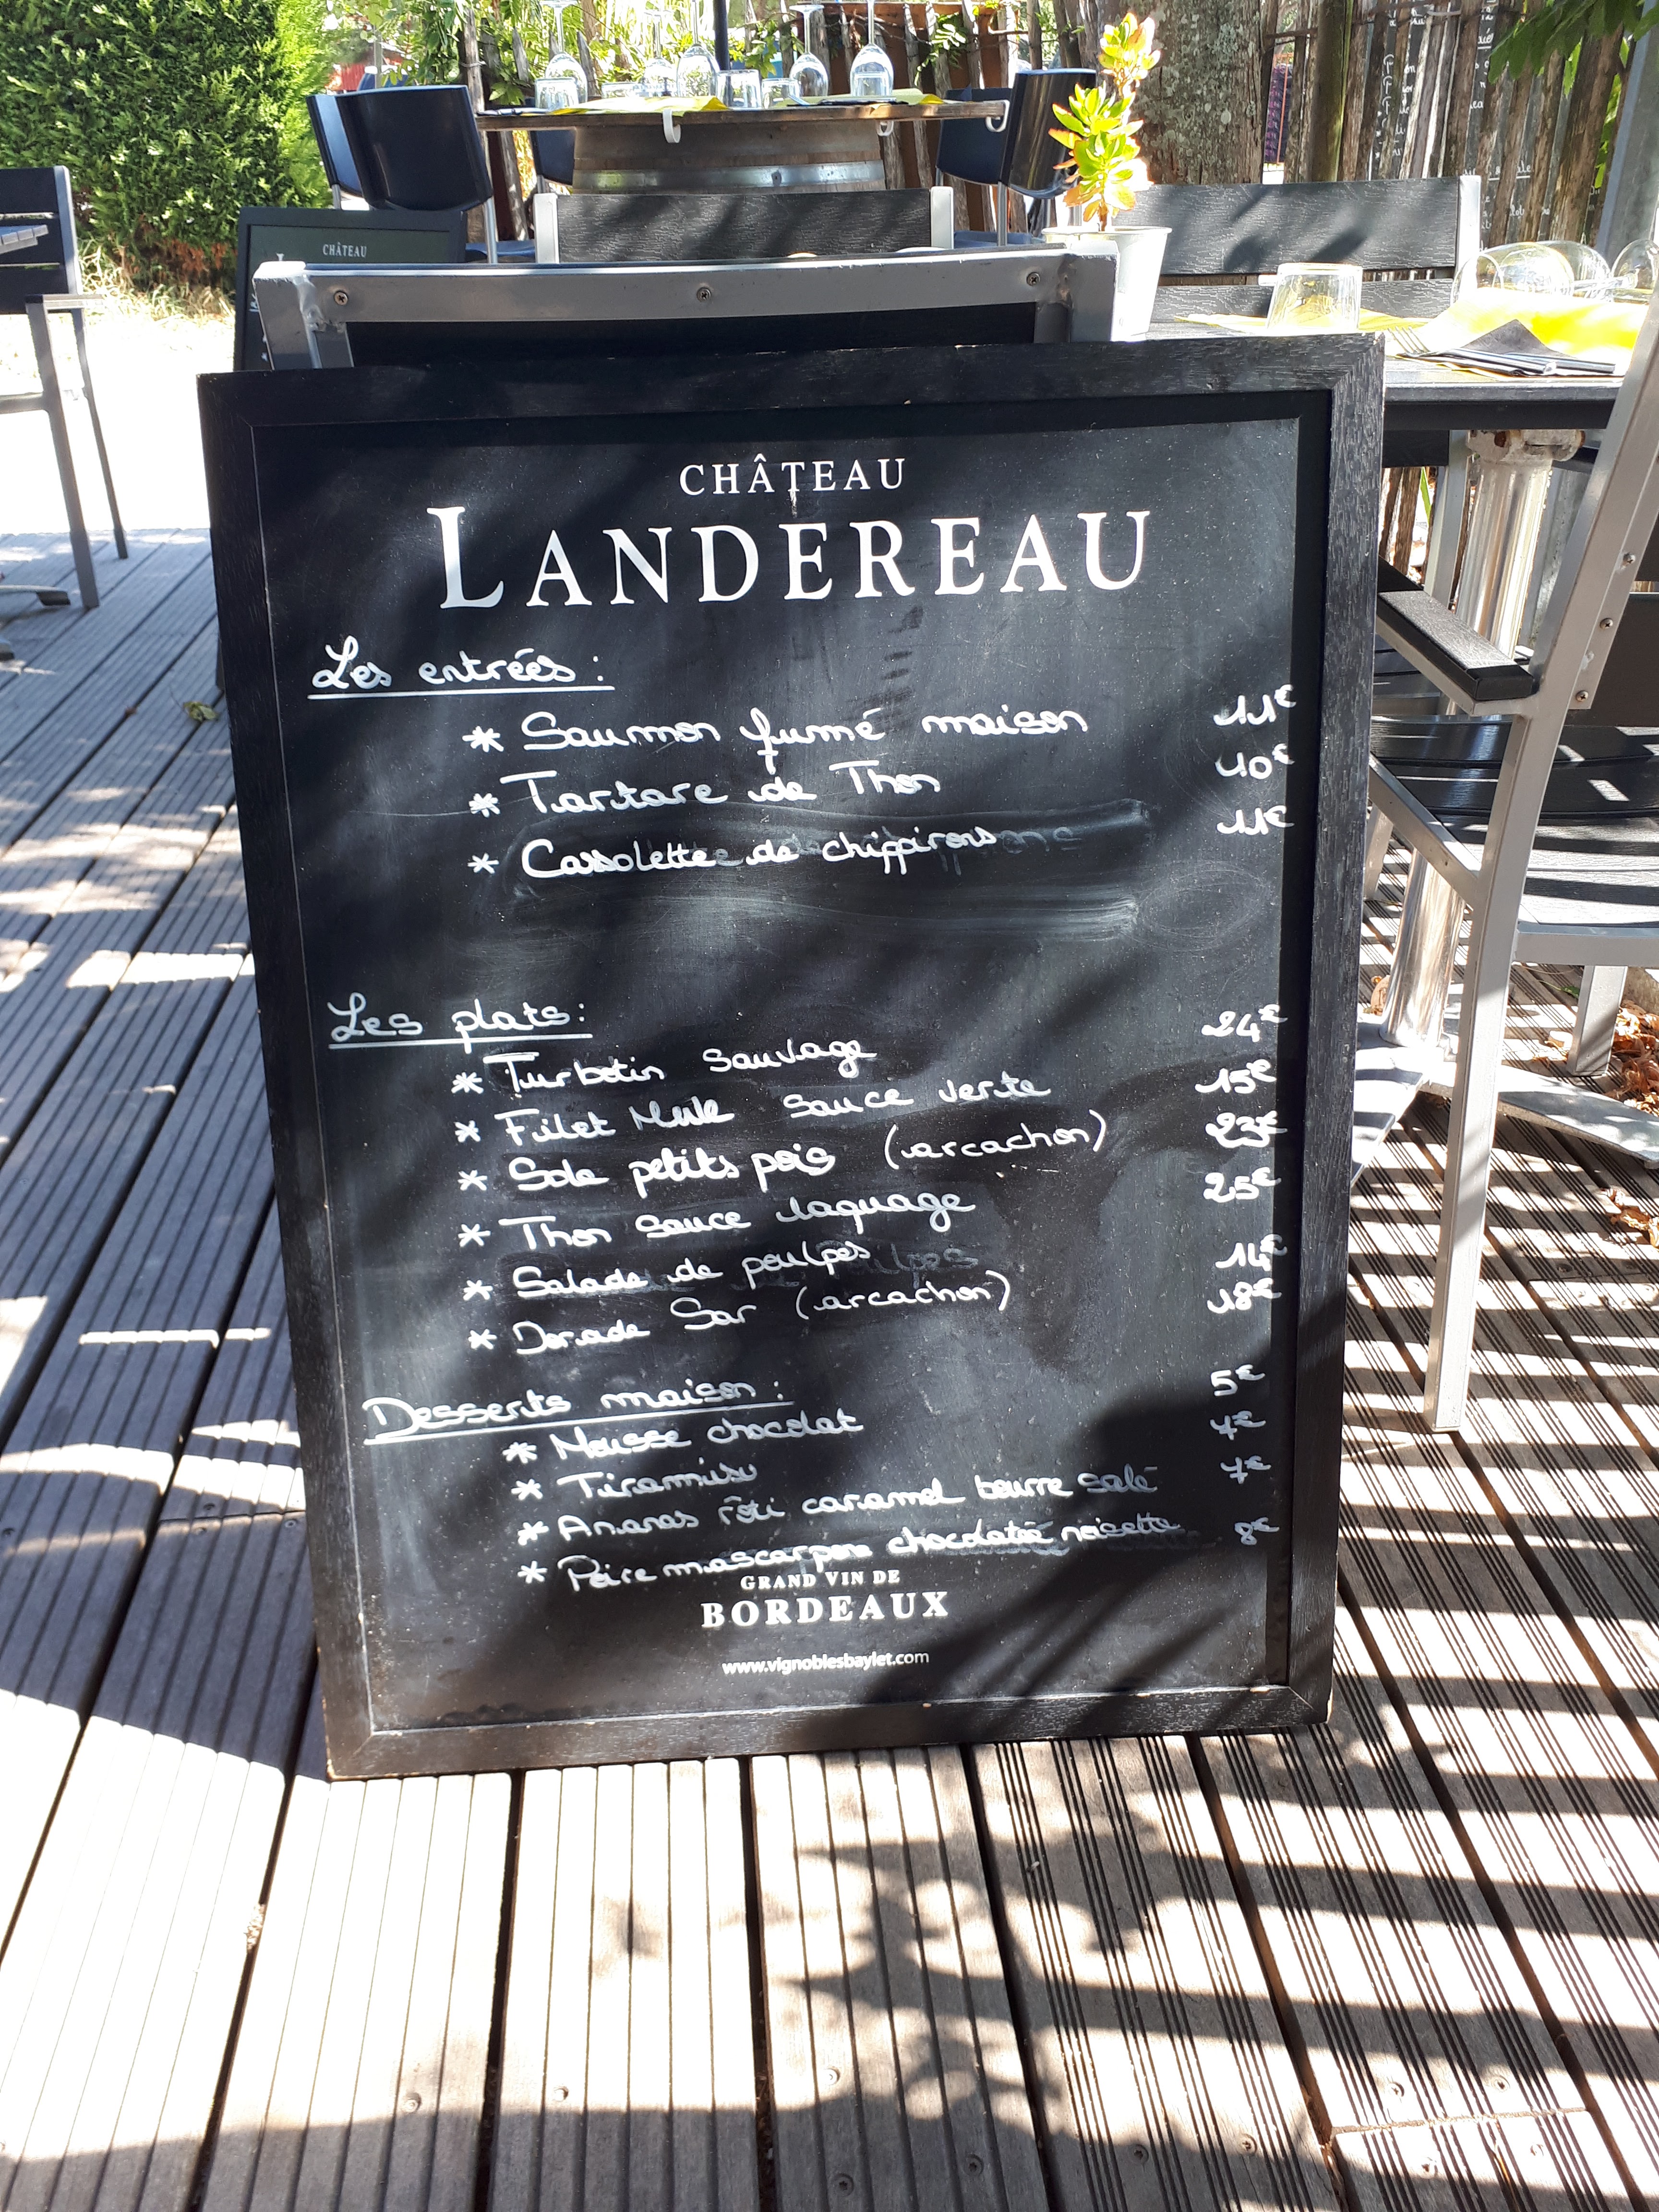 CHÂTEAU
CHÂTEAU
LANDEREAU
Les entrées :
* Saumon fumé maison 11€
* Tartare de Thon 10€
* Cassolette de chippirons 11€
Les plats :
* Turbotin sauvage 24€
* Filet Mule sauce verte 15€
* Sole petits pois (arcachon) 23€
* Thon sauce laquage 25€
* Salade de poulpes 14€
* Dorade Sar (arcachon) 18€
Desserts maison :
* Mousse chocolat 5€
* Tiramisu
* Ananas rôti caramel beurre salé 7€
* Poire mascarpone chocolat noisette 8€
GRAND VIN DE
BORDEAUX
www.vignoblesbaylet.com